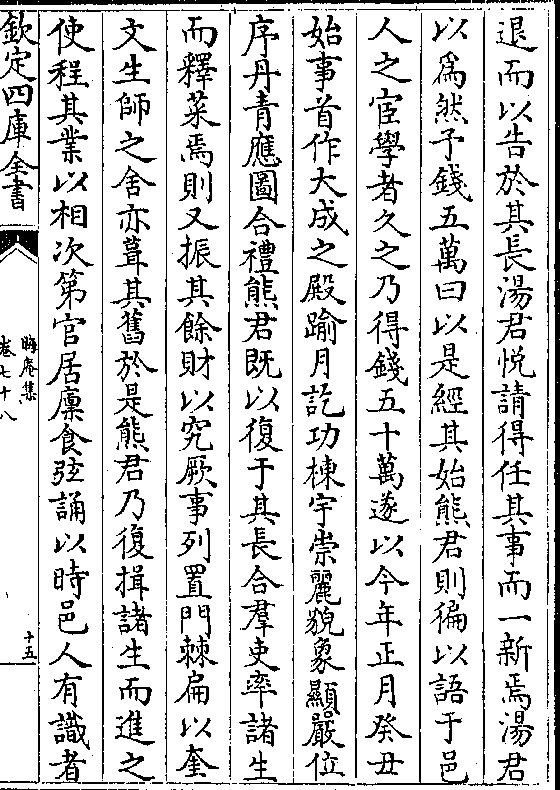 退而以告於其長湯君悦請得任其事而一新焉湯君
以為然予錢五萬曰以是經其始熊君則徧以語于邑
人之宦學者久之乃得錢五十萬遂以今年正月癸丑
始事首作大成之殿踰月訖功棟宇崇麗貌象顯嚴位
序丹青應圖合禮熊君既以復于其長合羣吏率諸生
而釋菜焉則又振其餘財以究厥事列置門棘扁以奎
文生師之舍亦葺其舊於是熊君乃復揖諸生而進之
使程其業以相次第官居廩食弦誦以時邑人有識者
欽定四庫全書
晦庵集
卷七十八
十五